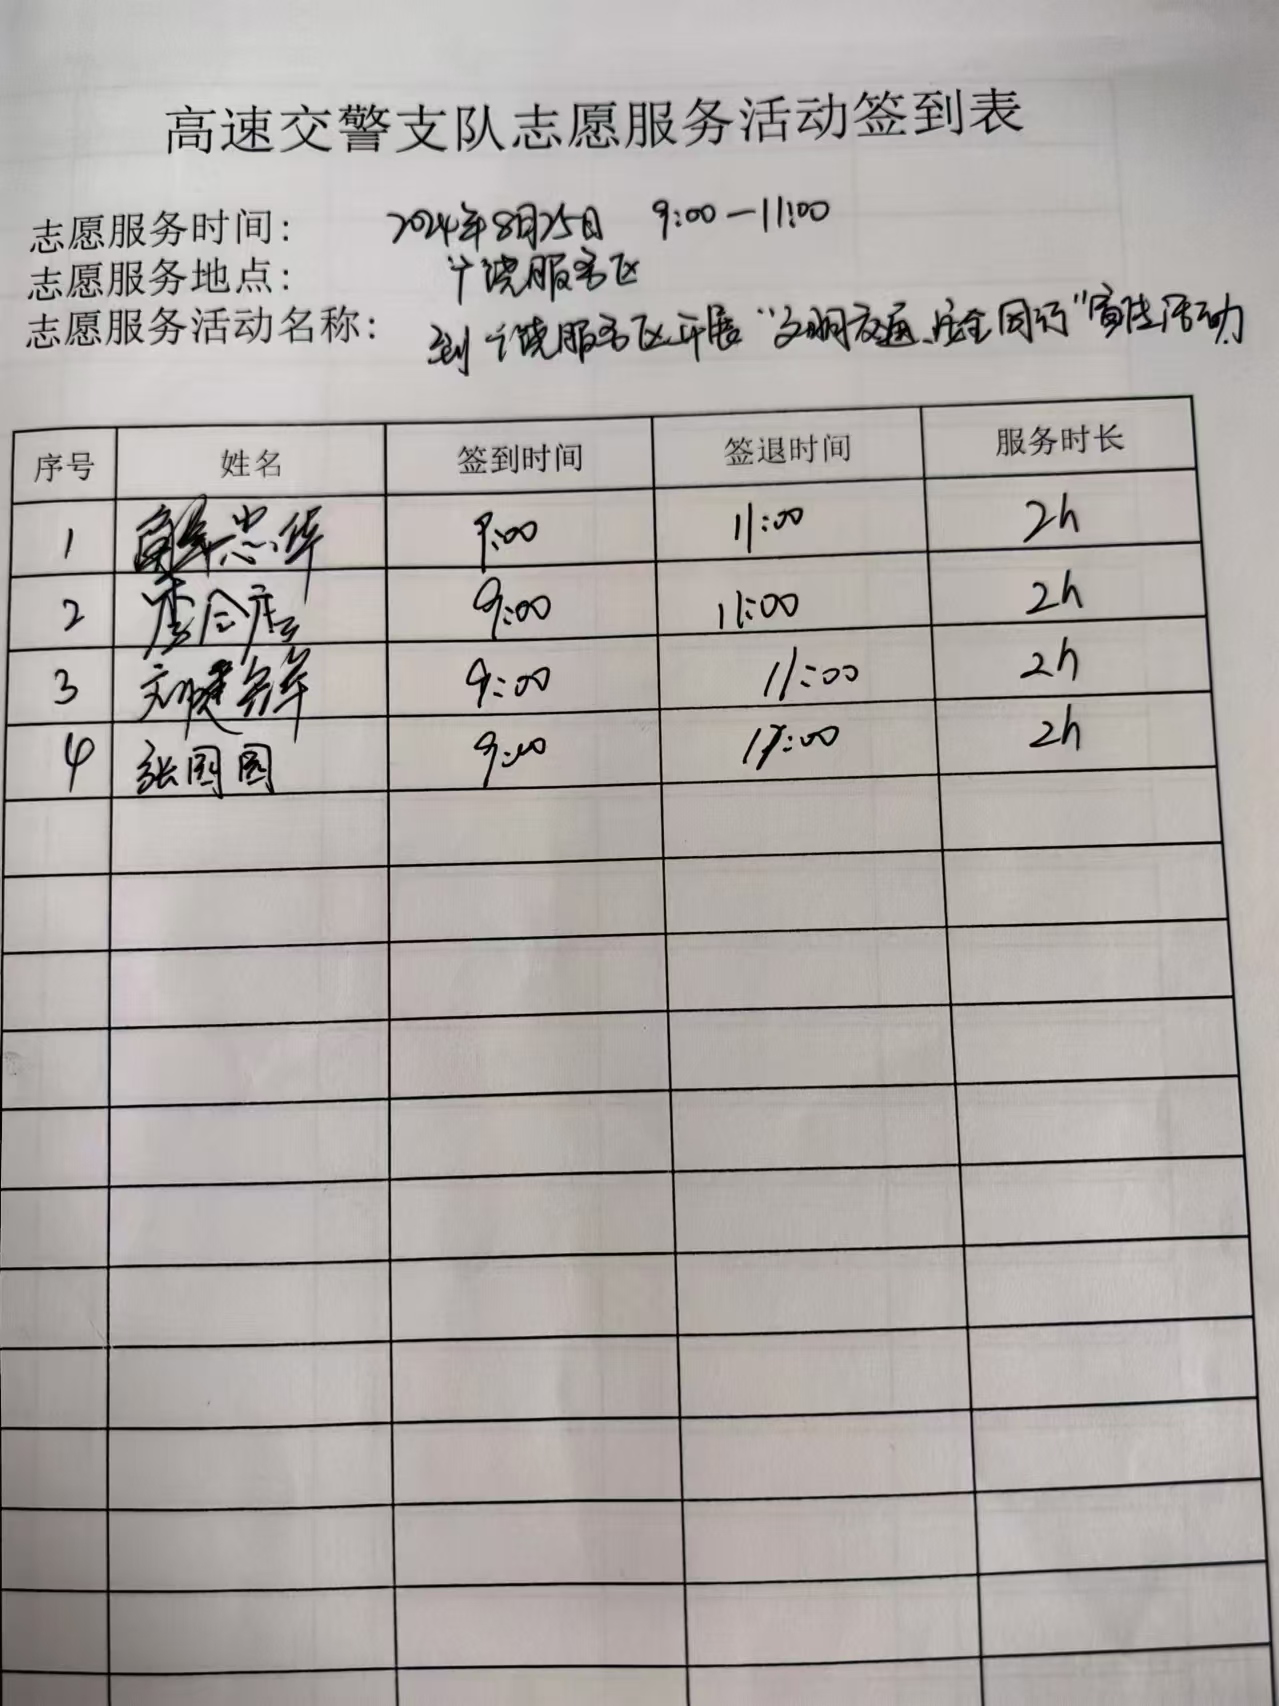 高速交警支队志愿服务活动签到表
志愿服务时间: 2024年8月25日 9:00—11:00
志愿服务地点: 服务区
志愿服务活动名称: 到 服务区开展“文明交通、安全同行”宣传活动
序号 姓名 签到时间 签退时间 服务时长
1 忠华 9:00 11:00 2h
2 9:00 11:00 2h
3 9:00 11:00 2h
4 张园园 9:00 11:00 2h